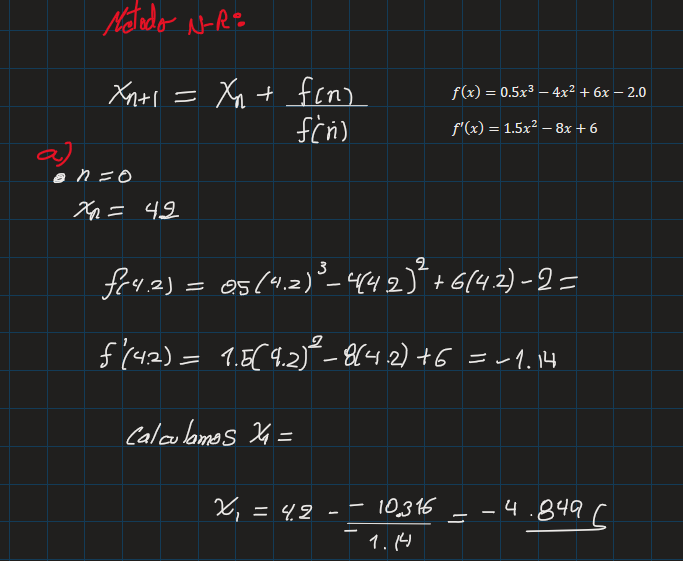 Metodo N-R:
Xn+1 = Xn + f(n) / f'(n)
f(x) = 0.5x³ − 4x² + 6x − 2.0
f'(x) = 1.5x² − 8x + 6
a)
• n = 0
Xn = 4.2
f(4.2) = 0.5(4.2)³ − 4(4.2)² + 6(4.2) − 2 =
f'(4.2) = 1.5(4.2)² − 8(4.2) + 6 = −1.14
Calculamos X1 =
X1 = 4.2 − −10.316 / −1.14 = −4.849